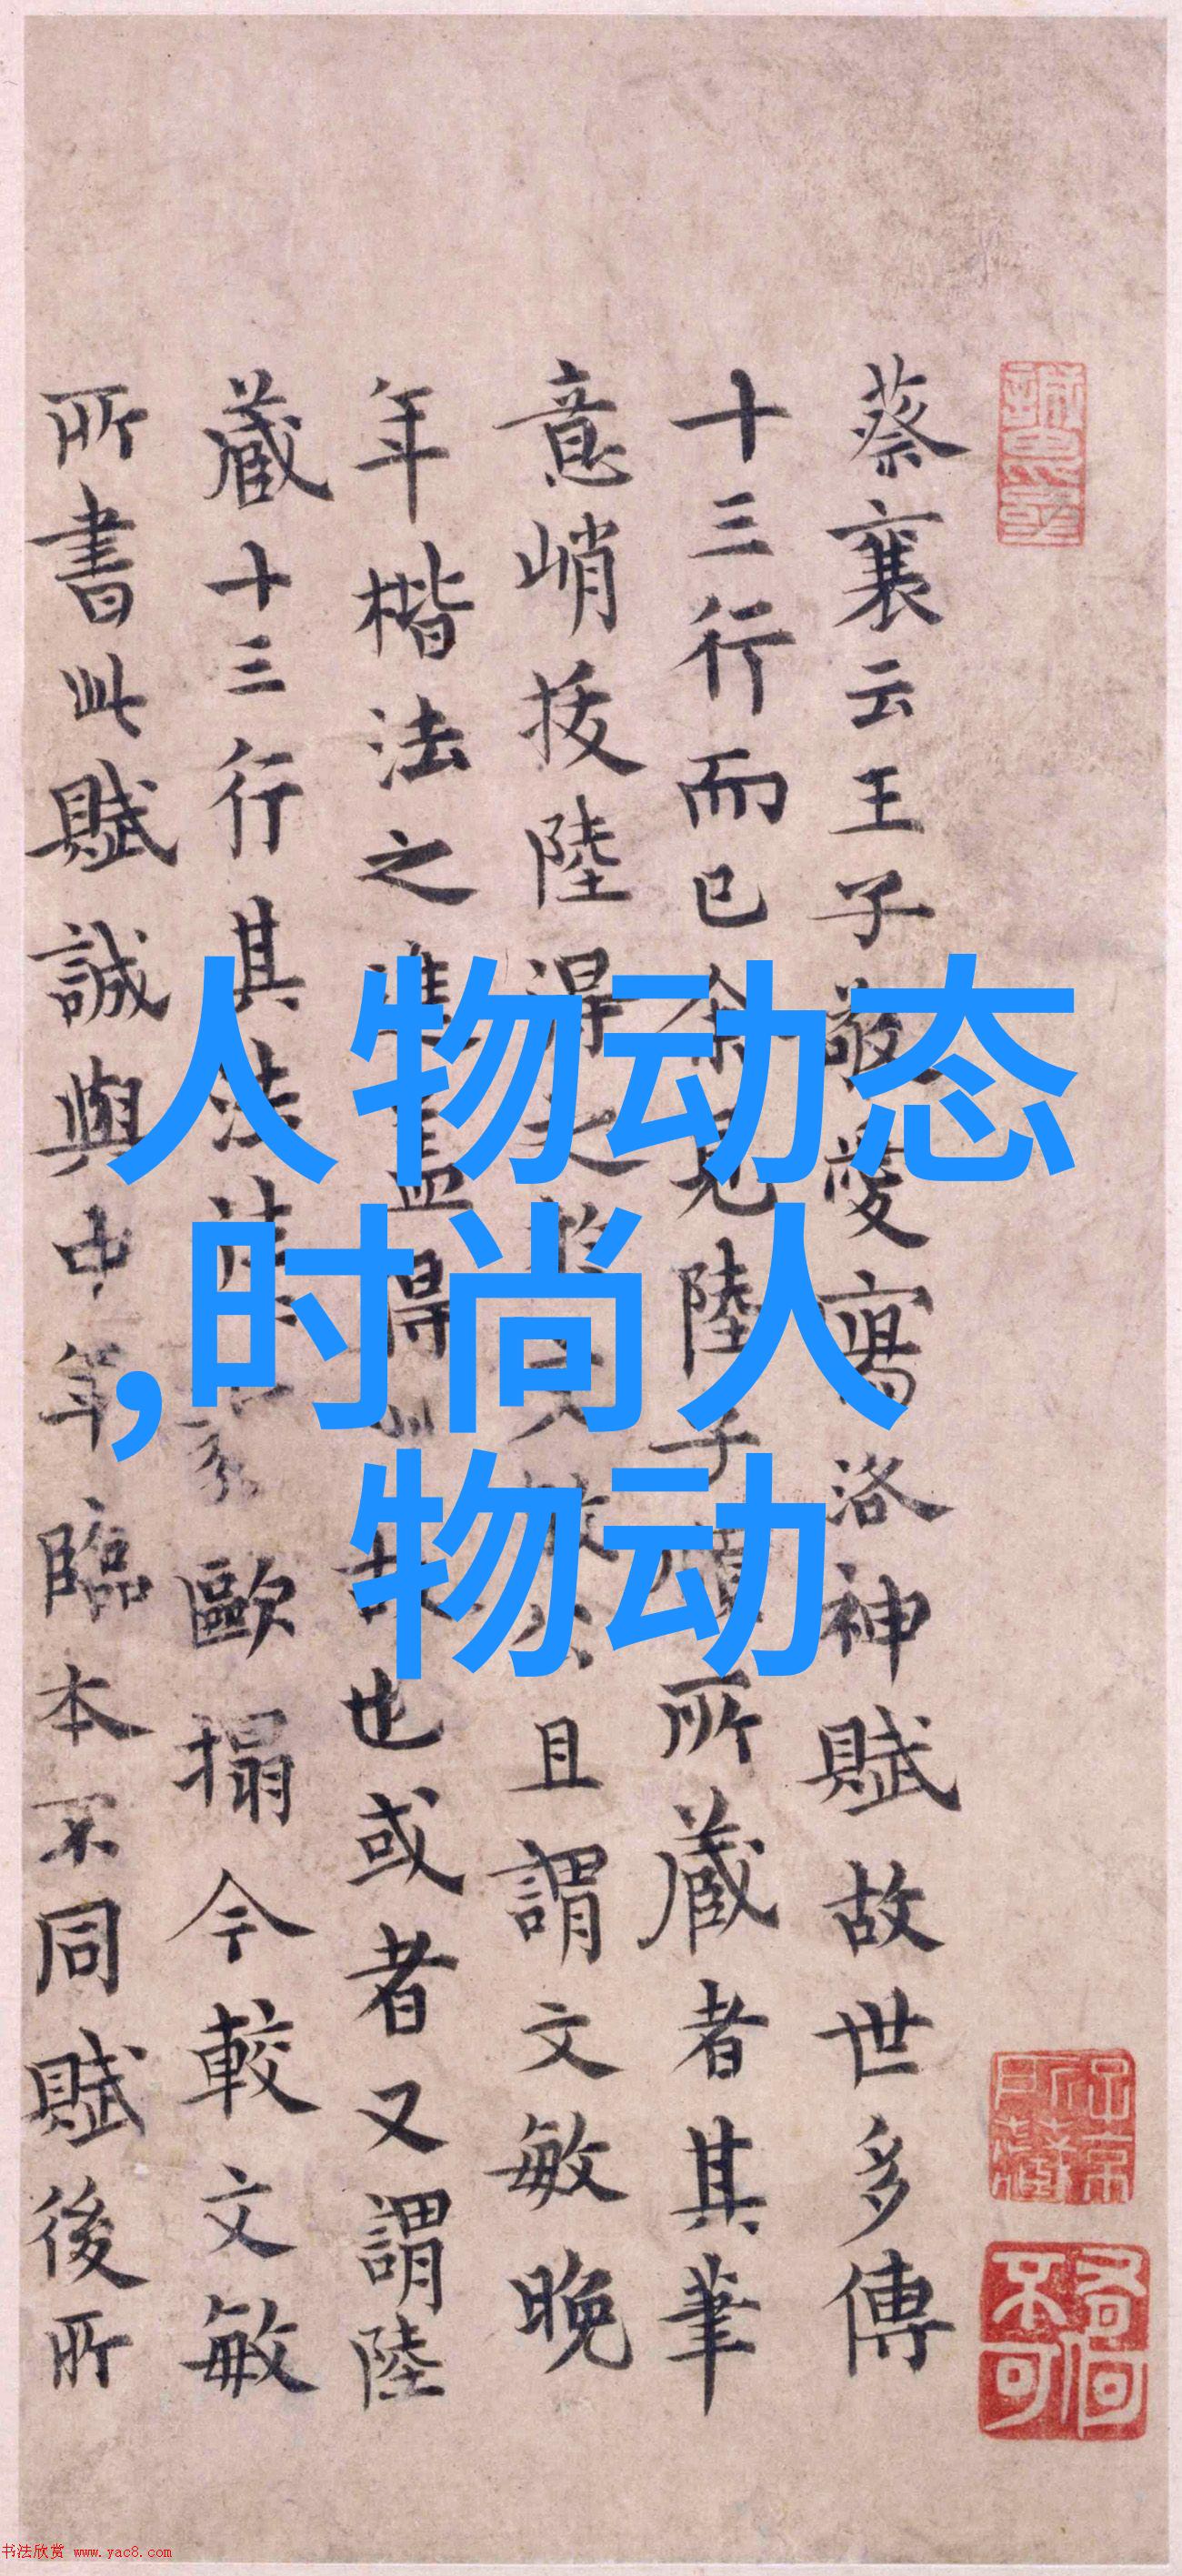 蔡襄云王子敬愛寫洛神賦故世多傳
十三行而已余見陸子所藏者其筆
意峭拔陸得之且謂文敏晚
年楷法之進蓋得也或者又謂陸
藏十三行其法歐搨今較文敏
所書此賦誠與中年臨本不同賦後所
人物动态
,时尚人
物动
书法欣赏 www.yac8.com